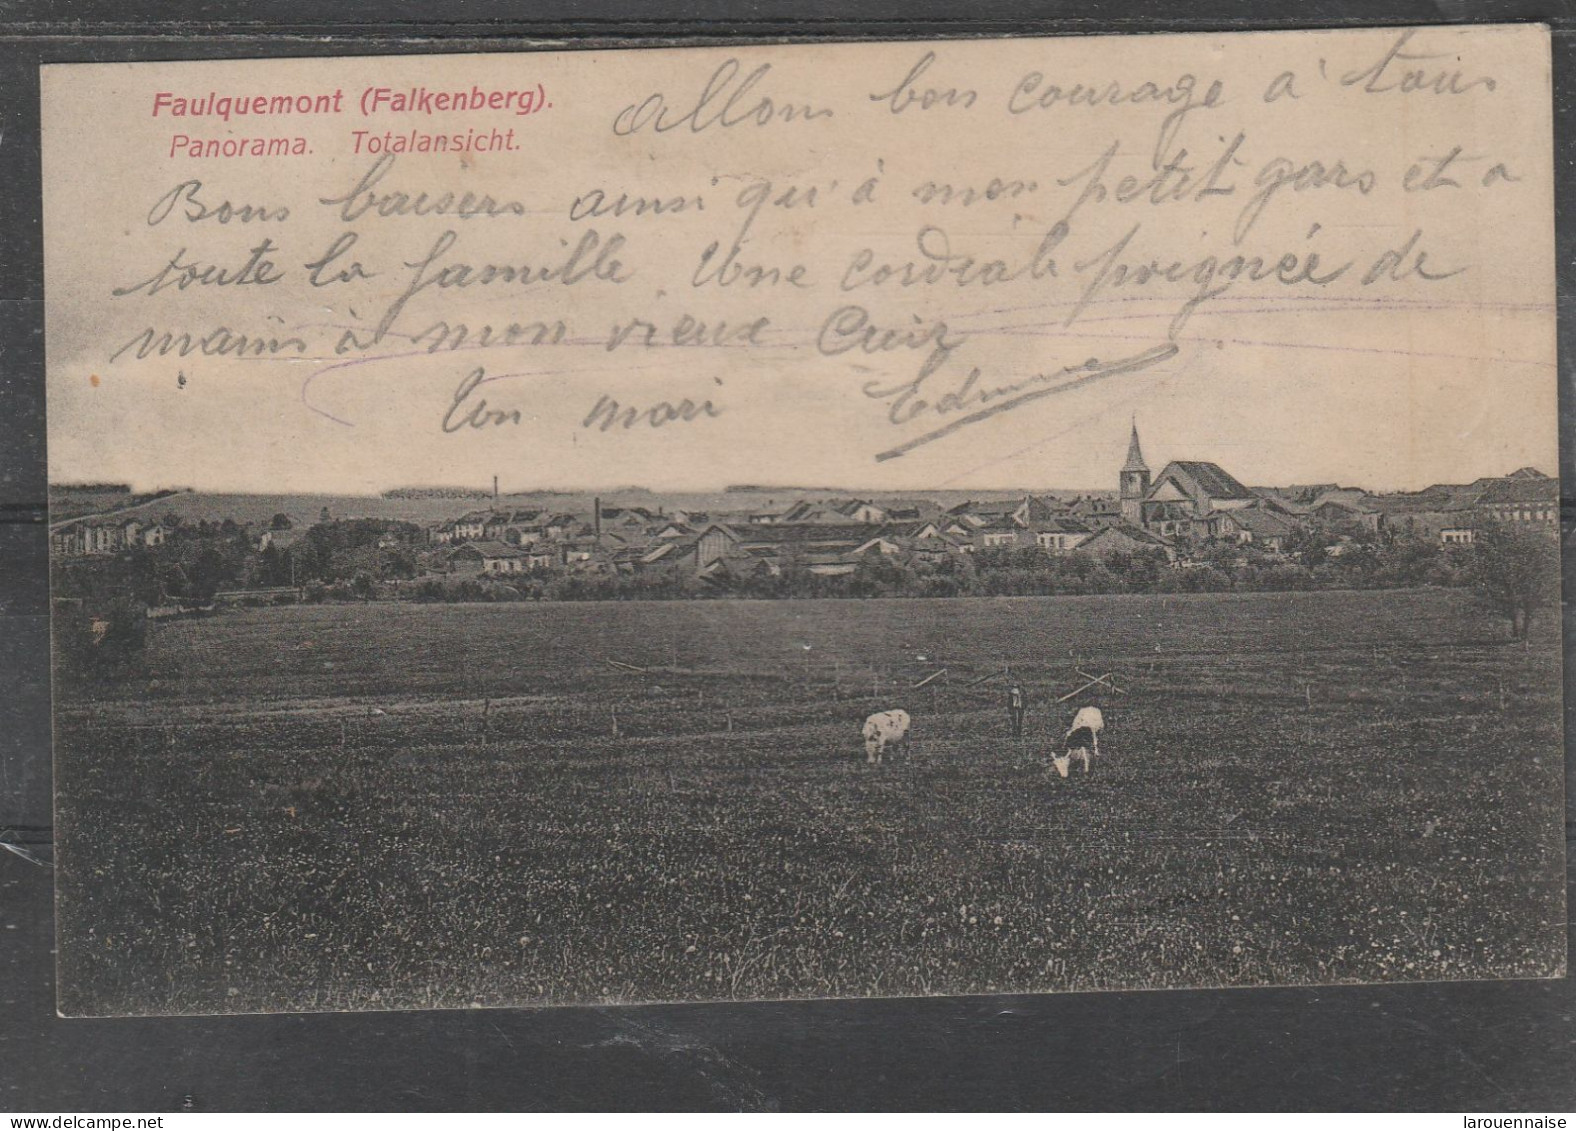 Faulquemont (Falkenberg).
Panorama. Totalansicht.
Allons bon courage à tous
Bons baisers ainsi qu'à mon petit gars et a
toute la famille. Une cordiale poignée de
mains à mon vieux
Ton mari Edmond
www.delcampe.net
larouennaise